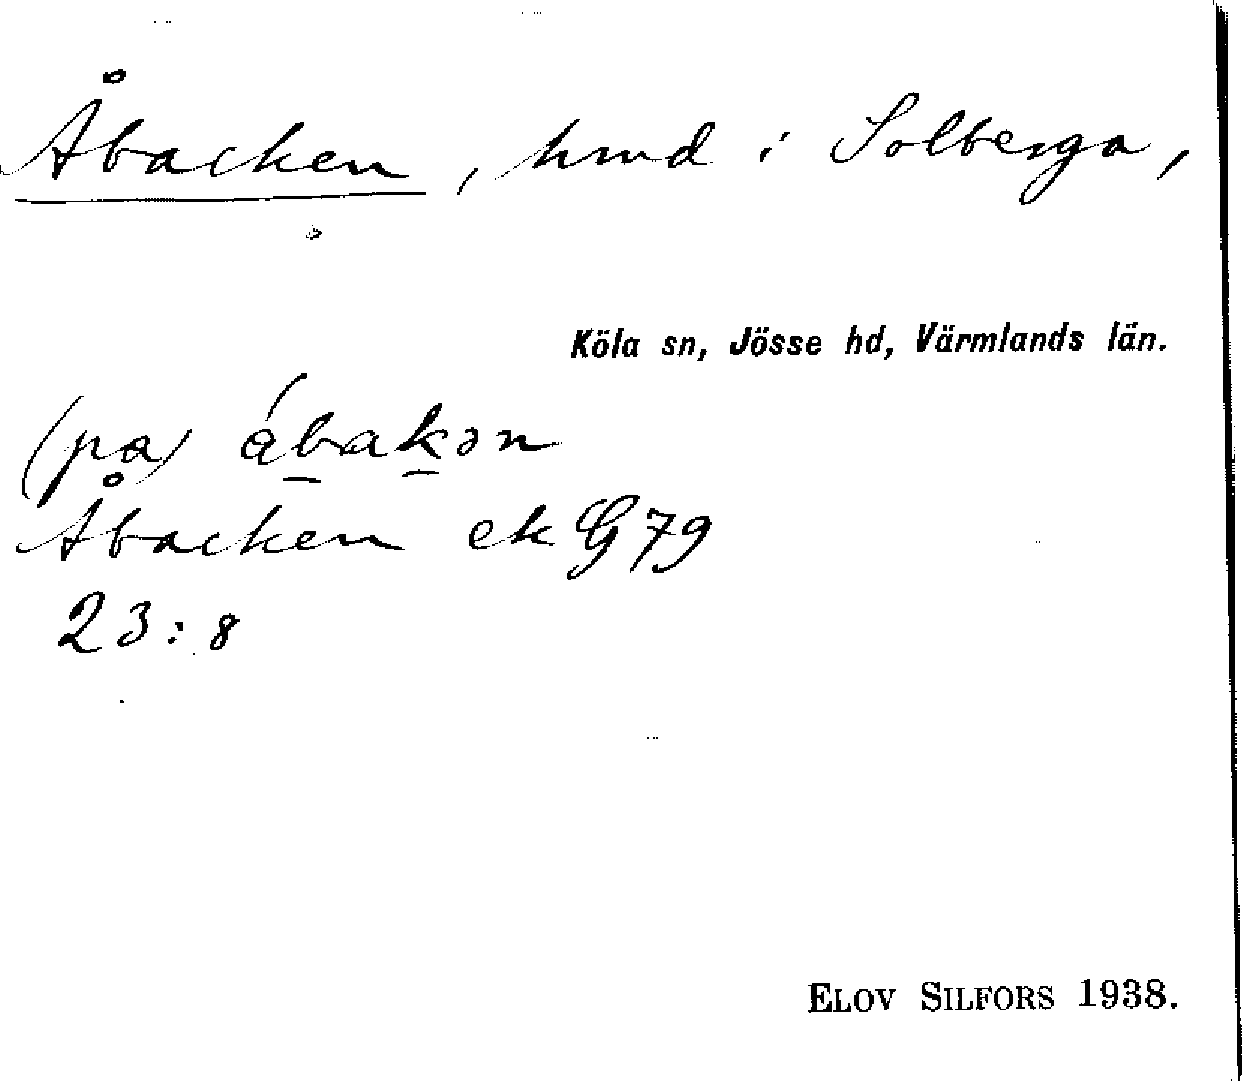 Åbacken, hmd i Solberga,
Köla sn, Jösse hd, Värmlands län.
(pa) ábakən
Åbacken ek G 79
23:8
ELOV SILFORS 1938.